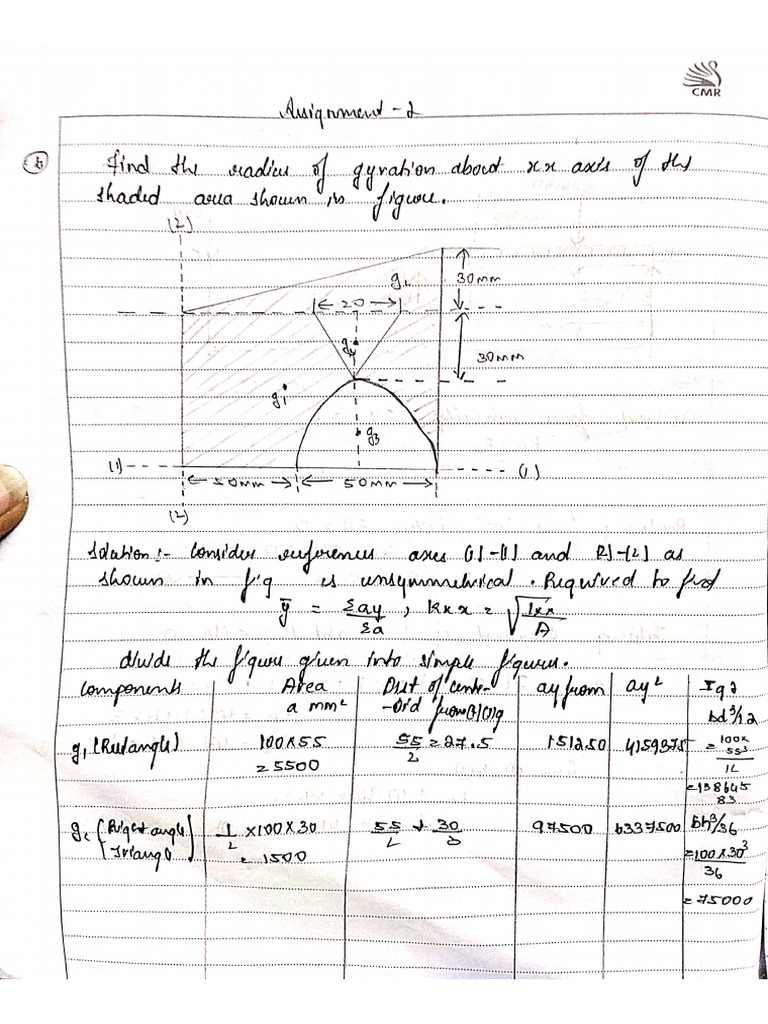 CMR
Assignment - 2
Find the radius of gyration about xx axis of the
shaded area shown in figure.
(2)
g2
30mm
20
g4
30mm
g1
g3
(1)
(1)
50mm
50mm
(2)
Solution :- Consider reference axes (1)-(1) and (2)-(2) as
shown in fig is unsymmetrical. Required to find
ȳ = Σay/Σa, Kxx = √Ixx/A
divide the figure given into simple figures.
Components
Area a mm²
Dist of centroid from (1)(1) y
ay from
ay²
Ig
bd³/12
g1 (Rectangle)
100x55
= 5500
55/2 = 27.5
151250
4159375
= 100x55³/12
= 13864583
g2 (Right angle Triangle)
1/2 x100x30
= 1500
97500
6337500
bh³/36
= 100x30³/36
= 75000